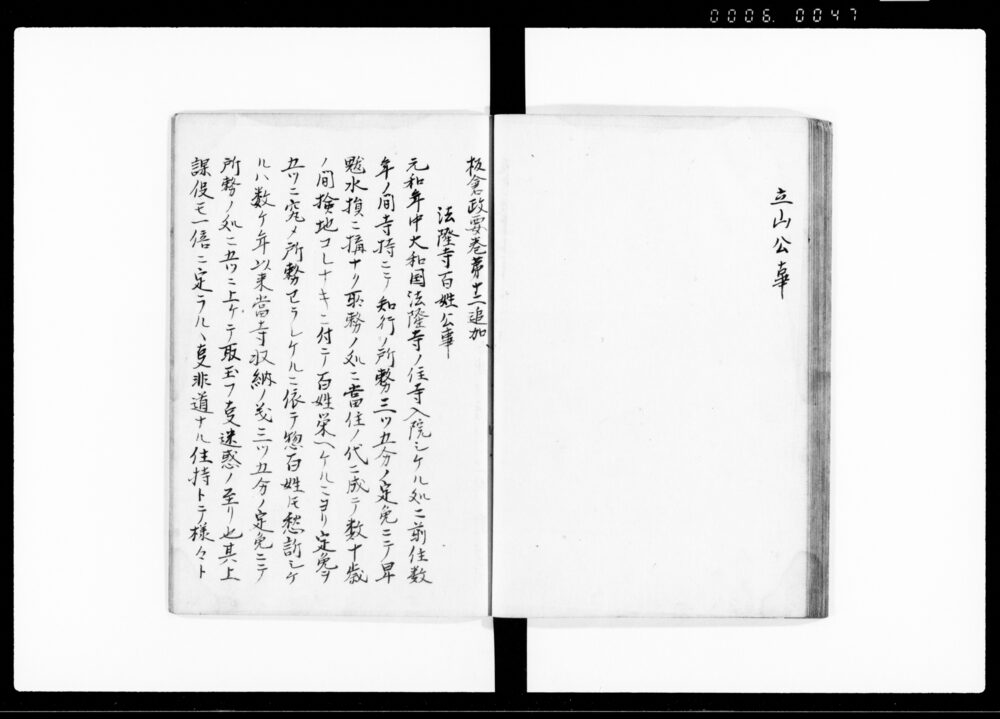 0006.0047
立山公事
板倉政要巻第十二追加
法隆寺百姓公事
元和年中大和国法隆寺ノ住寺入院シケル処ニ前住数
年ノ間寺持ニテ知行ノ所務三ツ五分ノ定免ニテ旱
魃水損ニ構ナク取務ノ処ニ當住ノ代ニ成テ数十歳
ノ間検地コレナキニ付テ百姓栄ヘケルニヨリ定免ヲ
五ツニ究メ所務セラレケルニ依テ惣百姓圧愁訴シケ
ルハ数ケ年以来當寺収納ノ義三ツ五分ノ定免ニテ
所務ノ処ニ五ツニ上ケテ取玉フ叓迷惑ノ至リ也其上
課役モ一倍ニ定ラルヽ叓非道ナル住持トテ様々ト